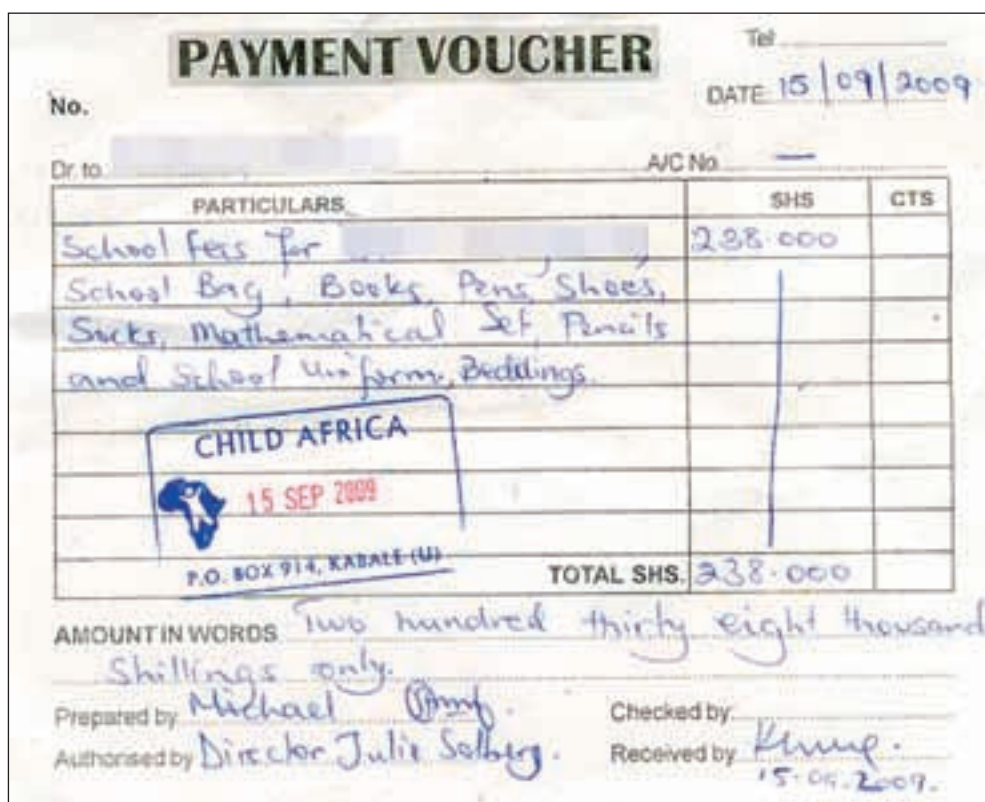 PAYMENT VOUCHER
Tel
No.
DATE 15/09/2009
Dr. to
A/C No. —
PARTICULARS SHS CTS
School Fees for 238.000
School Bag, Books, Pens, Shoes,
Socks, Mathematical Set, Pencils
and School Uniform, Beddings.
CHILD AFRICA
15 SEP 2009
P.O. BOX 914, KABALE (U)
TOTAL SHS. 238.000
AMOUNT IN WORDS Two hundred thirty eight thousand
Shillings only.
Prepared by Michael
Checked by
Authorised by Director Julie Solberg.
Received by
15.09.2009.